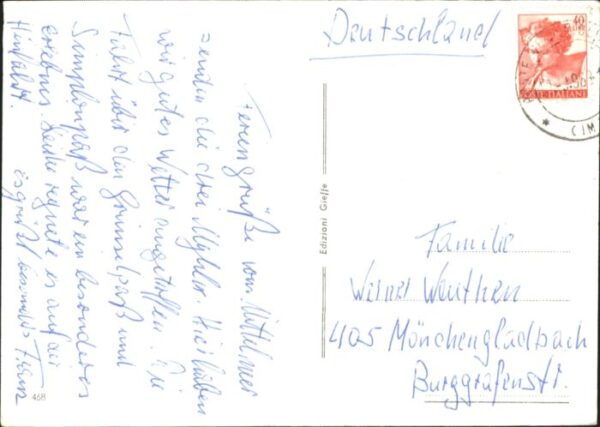 Deutschland
40
POSTE ITALIANE
CIM
Feriengrüße vom Mittelmeer
senden die drei Hier haben
wir gutes Wetter angetroffen. Die
Fahrt über den Grimselpaß und
Simplonpaß war ein besonderes
erlebnis. Leider regnete es auf der
Hinfahrt.
es grüßt besonders
468
Edizioni Gielle
Familie
Werner Wauthen
405 Mönchengladbach
Burggrafenstr.